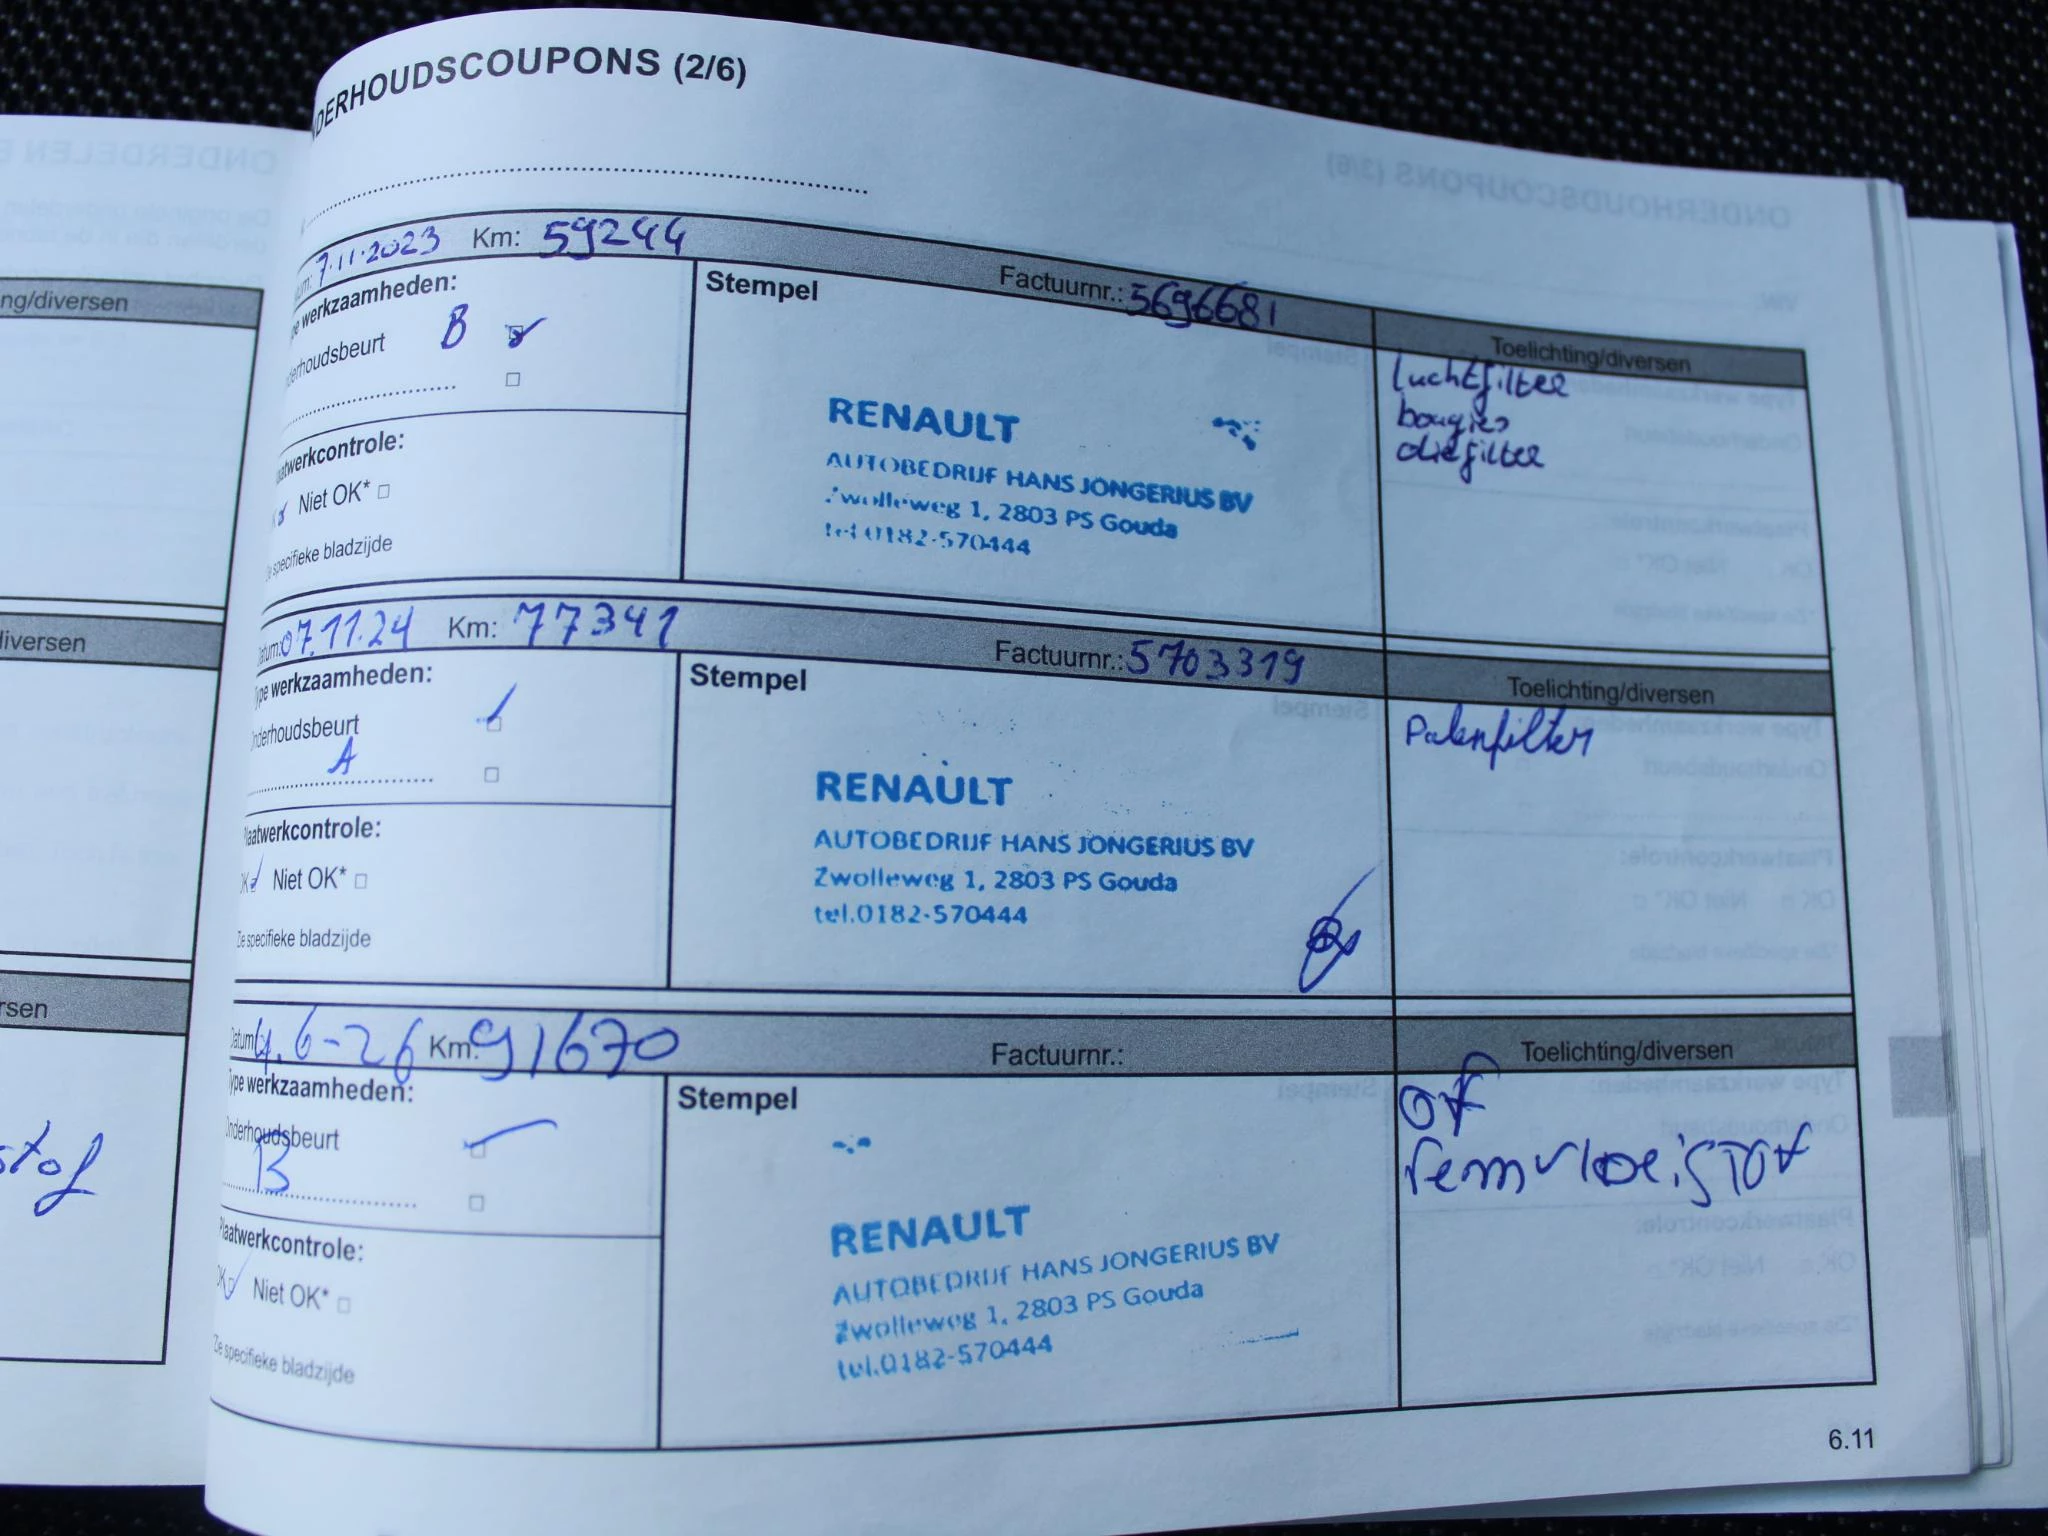 NDERHOUDSCOUPONS (2/6)
7.11.2023 Km: 59244 Factuurnr.: 5696681
Toelichting/diversen
werkzaamheden:
Stempel
derhoudsbeurt B
luchtfilter
bougies
oliefilter
atwerkcontrole:
Niet OK*
specifieke bladzijde
RENAULT
AUTOBEDRIJF HANS JONGERIUS BV
Zwolleweg 1, 2803 PS Gouda
tel.0182-570444
Datum: 07.11.24 Km: 77341 Factuurnr.: 5703319
Toelichting/diversen
Type werkzaamheden:
Stempel
Onderhoudsbeurt
A
Polenfilter
Plaatwerkcontrole:
OK Niet OK*
Zie specifieke bladzijde
RENAULT
AUTOBEDRIJF HANS JONGERIUS BV
Zwolleweg 1, 2803 PS Gouda
tel.0182-570444
Datum 4.6-26 Km: 91670 Factuurnr.:
Toelichting/diversen
Type werkzaamheden:
Stempel
Onderhoudsbeurt
B
Plaatwerkcontrole:
OK Niet OK*
*Zie specifieke bladzijde
RENAULT
AUTOBEDRIJF HANS JONGERIUS BV
Zwolleweg 1, 2803 PS Gouda
tel.0182-570444
6.11
ng/diversen
diversen
rsen
stof